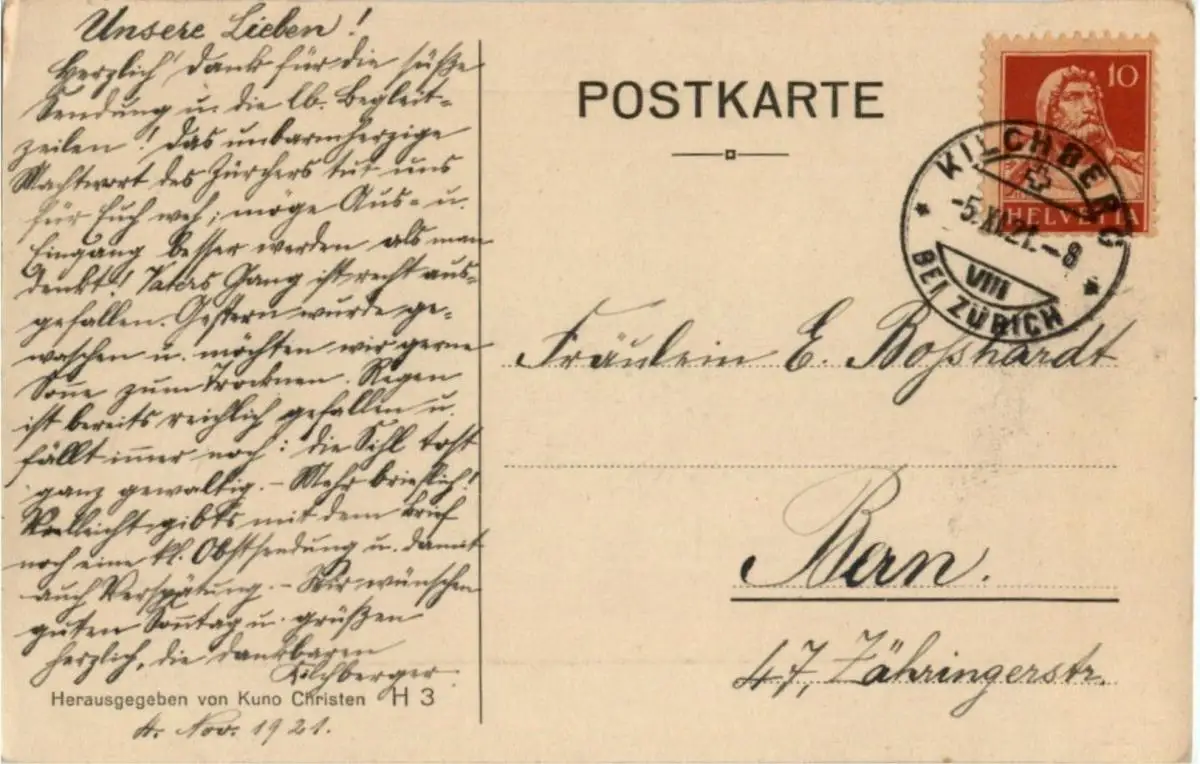 Unsere Lieben!
Herzlich Dank für die süße
Sendung u. die lb. Begleit-
zeilen! Das unbarmherzige
Machtwort des Zürchers tut uns
für Euch weh; möge Aus- u.
Eingang besser werden als man
denkt! Vaters Gang ist recht aus-
gefallen. Gestern wurde ge-
waschen u. möchten wir gerne
Sonne zum Trocknen. Regen
ist bereits reichlich gefallen u.
fällt immer noch: die Sihl tost
ganz gewaltig. – Mehr brieflich!
Vielleicht gibts mit dem Brief
noch eine kl. Obstsendung u. damit
auch Verspätung. – Wir wünschen
guten Sonntag u. grüßen
herzlich, die dankbaren
Kilchberger.
Herausgegeben von Kuno Christen H 3
4. Nov. 1921.
POSTKARTE
10
HELVETIA
KILCHBERG
-5.XI.21.-8
VIII
BEI ZÜRICH
Fräulein E. Boßhardt
Bern.
47, Zähringerstr.